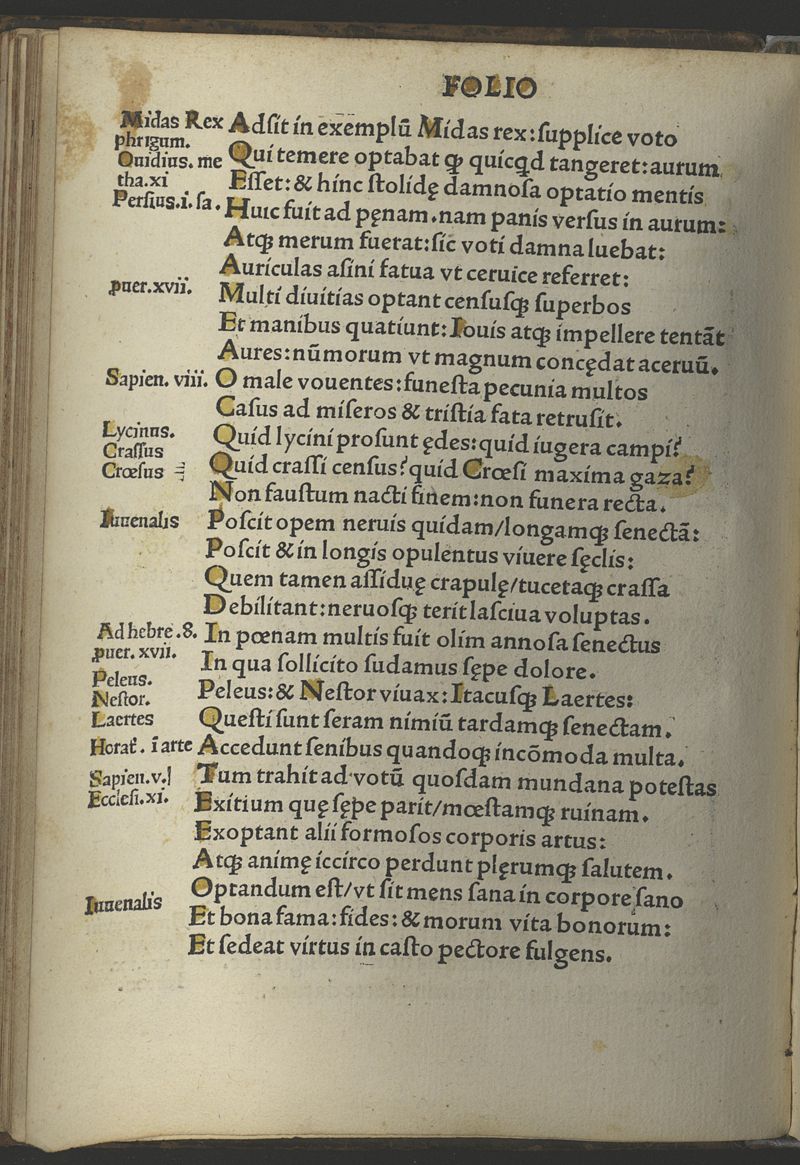 FOLIO
Midas Rex
phrigum.
Adſit in exēmplū Midas rex: ſupplice voto
Ouidius. me
Qui temere optabat ꝙ quicqd tangeret: aurum
tha.xi
Eſſet: & hinc ſtolidę damnoſa optatio mentis
Perſius.i. ſa.
Huic fuit ad pęnam. nam panis verſus in aurum:
Atqꝫ merum fuerat: ſic voti damna luebat:
Auriculas aſini fatua vt ceruice referret:
ꝓuer.xvii.
Multi diuitias optant cenſuſqꝫ ſuperbos
Et manibus quatiunt: Iouis atqꝫ impellere tentāt
Aures: nūmorum vt magnum concędat aceruū.
Sapien. viii.
O male vouentes: funeſta pecunia multos
Caſus ad miſeros & triſtia fata retruſit.
Lycinus.
Quid lycini proſunt ędes: quid iugera campi?
Craſſus
Crœſus
Quid craſſi cenſus? quid Crœſi maxima gaza?
Non fauſtum nacti finem: non funera recta.
Iuuenalis
Poſcit opem neruis quidam/longamqꝫ ſenectā:
Poſcit & in longis opulentus viuere ſęclis:
Quem tamen aſſiduę crapulę/tucetaqꝫ craſſa
Debilitant: neruoſqꝫ terit laſciua voluptas.
Ad hebre .8.
In pœnam multis fuit olim annoſa ſenectus
ꝓuer. xvii.
In qua ſollicito ſudamus ſępe dolore.
Peleus.
Neſtor.
Peleus: & Neſtor viuax: Itacuſqꝫ Laertes:
Laertes
Queſti ſunt ſeram nimiū tardamqꝫ ſenectam.
Horat̄. ī arte
Accedunt ſenibus quandoqꝫ incōmoda multa.
Sapien.v.
Tum trahit ad votū quoſdam mundana poteſtas
Eccleſi.xi.
Exitium quę ſępe parit/mœſtamqꝫ ruinam.
Exoptant alii formoſos corporis artus:
Atqꝫ animę iccirco perdunt plęrumqꝫ ſalutem.
Iuuenalis
Optandum eſt/vt ſit mens ſana in corpore ſano
Et bona fama: fides: & morum vita bonorum:
Et ſedeat virtus in caſto pectore fulgens.